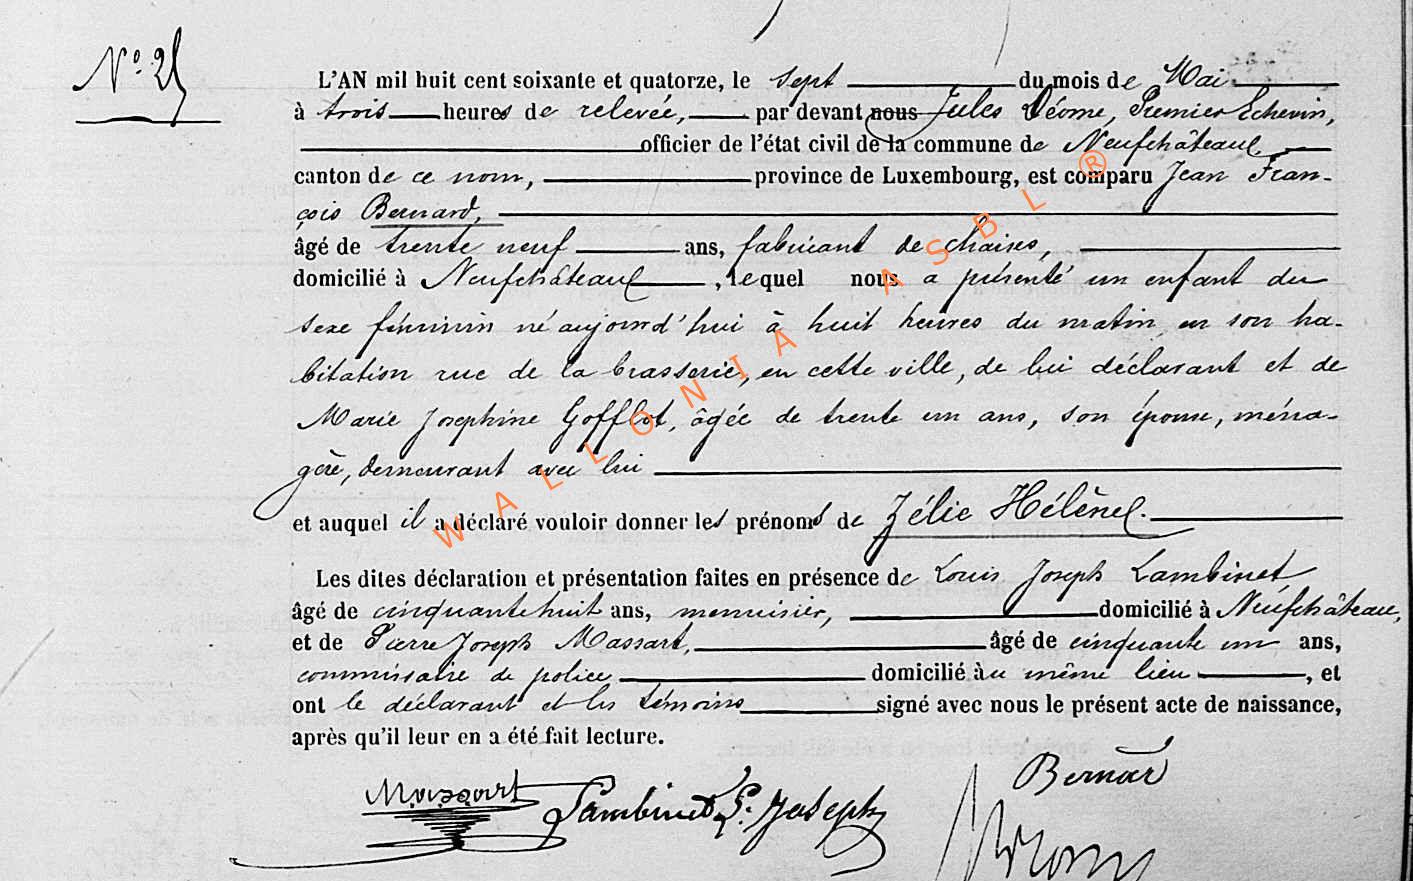 N° 25
L'AN mil huit cent soixante et quatorze, le sept du mois de Mai
à trois heures de relevée, par devant nous Jules Déome, Premier Echevin,
officier de l'état civil de la commune de Neufchâteau,
canton de ce nom, province de Luxembourg, est comparu Jean Fran-
çois Bernard,
âgé de trente neuf ans, fabricant de chaises,
domicilié à Neufchâteau, lequel nous a présenté un enfant du
sexe féminin né aujourd'hui à huit heures du matin en son ha-
bitation rue de la brasserie, en cette ville, de lui déclarant et de
Marie Josephine Gofflot, âgée de trente un ans, son épouse, ména-
gère, demeurant avec lui
et auquel il a déclaré vouloir donner les prénoms de Zélie Hélène.
Les dites déclaration et présentation faites en présence de Louis Joseph Lambinet
âgé de cinquante huit ans, menuisier, domicilié à Neufchâteau,
et de Pierre Joseph Massart, âgé de cinquante un ans,
commissaire de police domicilié au même lieu, et
ont le déclarant et les témoins signé avec nous le présent acte de naissance,
après qu'il leur en a été fait lecture.
Bernard
Massart Lambinet L. Joseph
WALLONIA ASBL ®